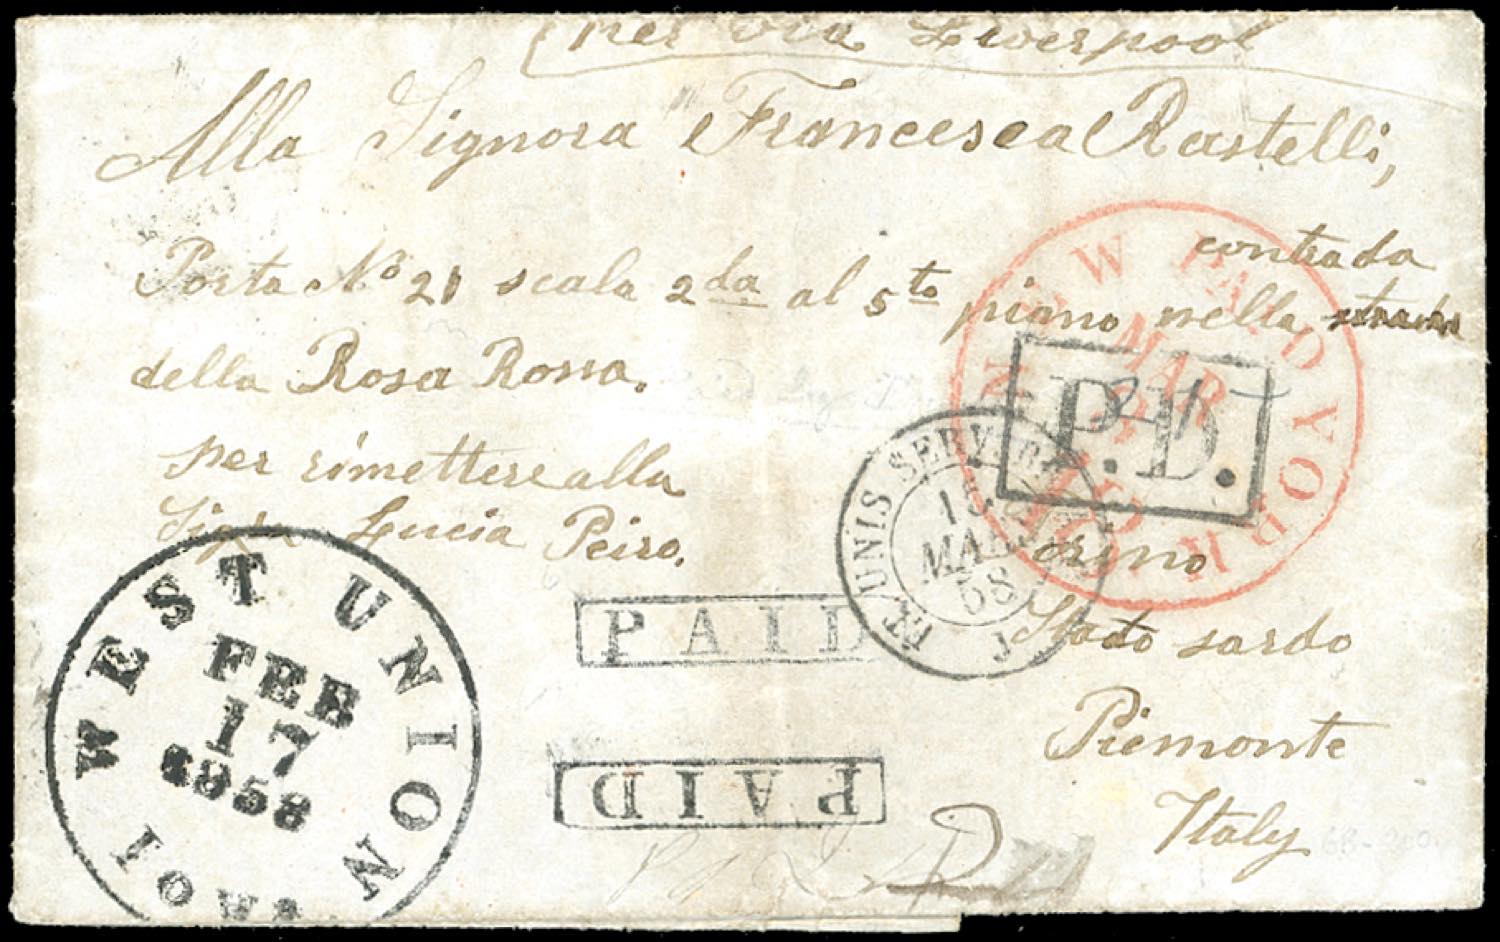 per via Liverpool
Alla Signora Francesca Rastelli,
Porta No 21 scala 2da al 5to piano nella contrada
della Rosa Rossa.
per rimettere alla
Sigra Lucia Peiro.
Torino
Stato sardo
Piemonte
Italy
NEW PAID YORK
MAR
P.D.
ET. UNIS SERV.
15
MARS
58
PAID
PAID
WEST UNION
FEB
17
1858
IOWA